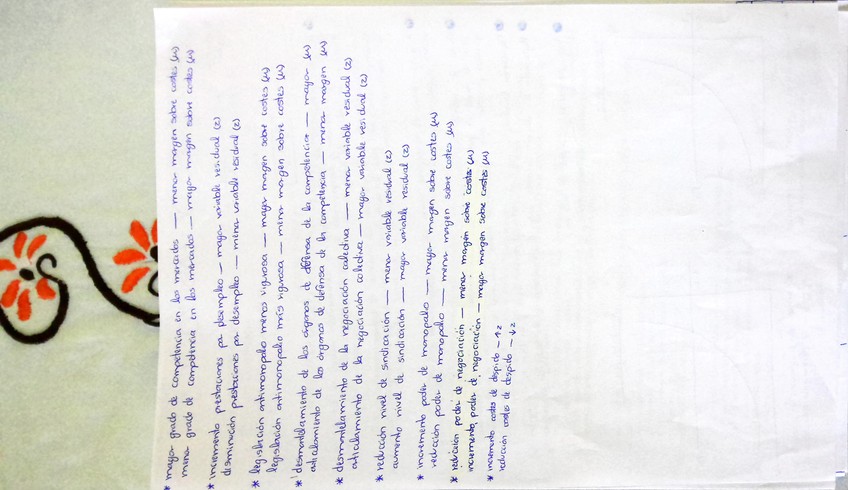 * mayor grado de competencia en los mercados — menor margen sobre costes (μ)
menor grado de competencia en los mercados — mayor margen sobre costes (μ)
* incremento prestaciones por desempleo — mayor variable residual (z)
disminución prestaciones por desempleo — menor variable residual (z)
* legislación antimonopolio menos rigurosa — mayor margen sobre costes (μ)
legislación antimonopolio más rigurosa — menor margen sobre costes (μ)
* desmantelamiento de los órganos de defensa de la competencia — mayor (μ)
articulamiento de los órganos de defensa de la competencia — menor margen (μ)
* desmantelamiento de la negociación colectiva — menor variable residual (z)
articulamiento de la negociación colectiva — mayor variable residual (z)
* reducción nivel de sindicación — menor variable residual (z)
aumento nivel de sindicación — mayor variable residual (z)
* incremento poder de monopolio — mayor margen sobre costes (μ)
reducción poder de monopolio — menor margen sobre costes (μ)
* reducción poder de negociación — menor margen sobre costes (μ)
incremento poder de negociación — mayor margen sobre costes (μ)
* incremento costes de despido — ↑z
reducción costes de despido — ↓z